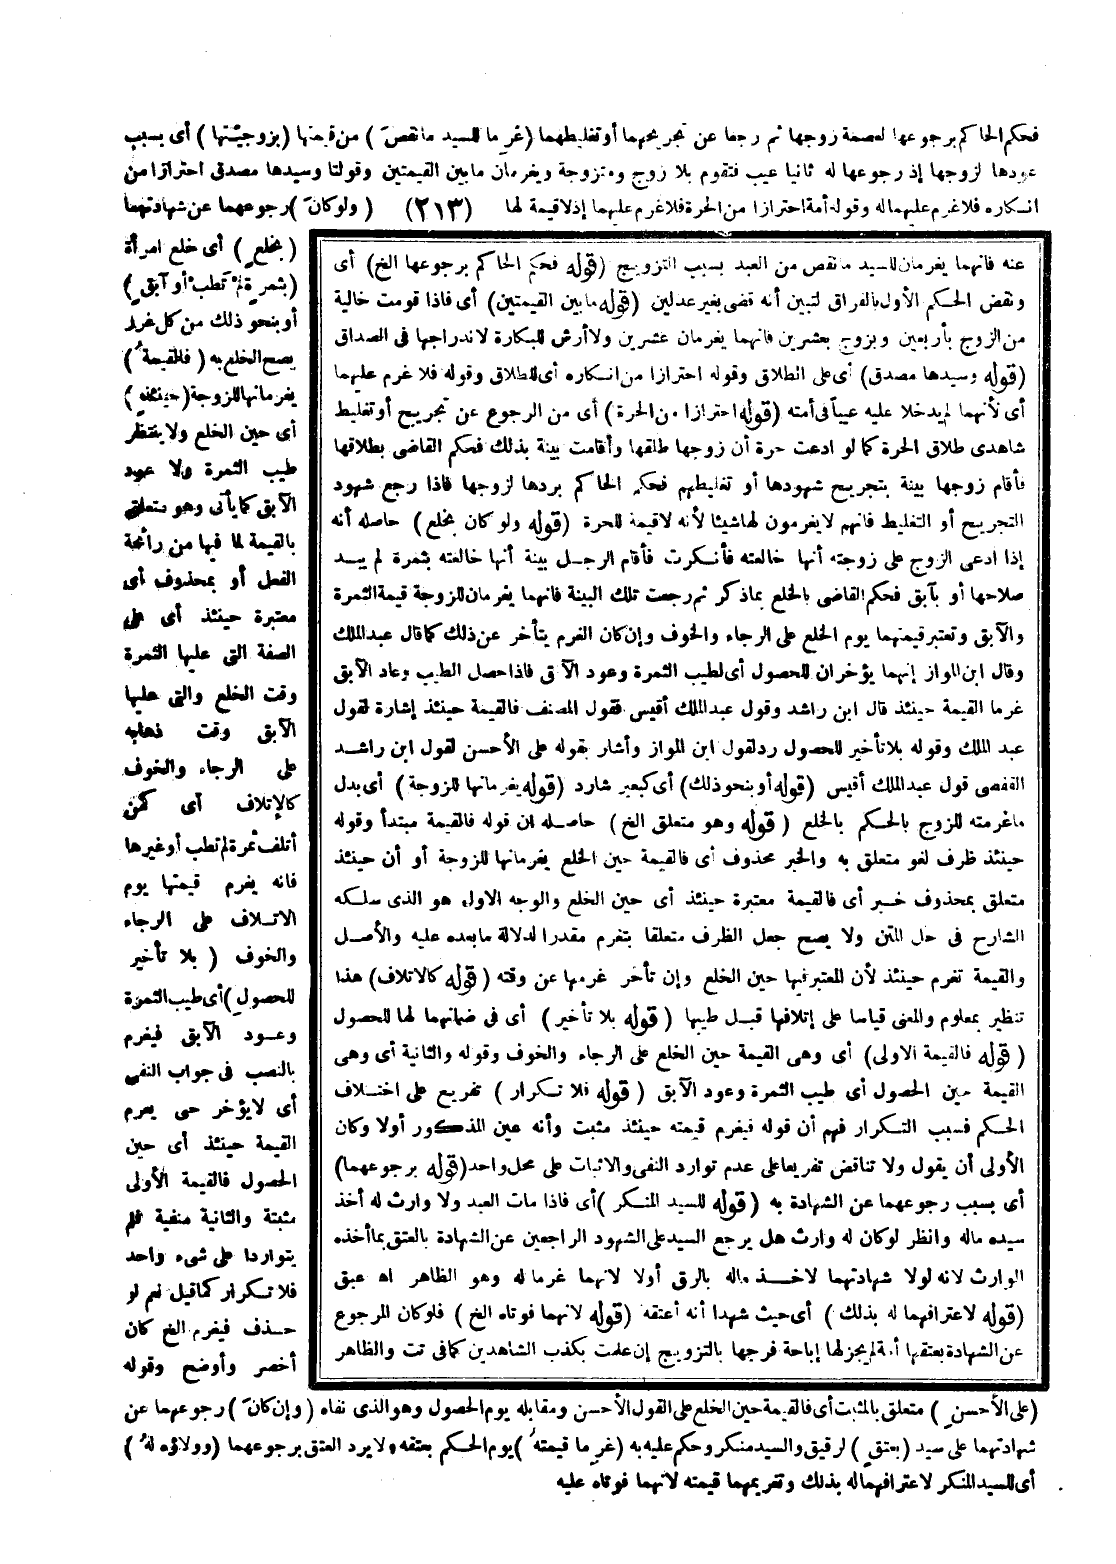 فحكم الحاكم برجوعها لعصمة زوجها ثم رجعا عن تجريحهما أو تغليطهما (غرما للسيد ما نقص) من قيمتها (بزوجيتها) أى بسبب
عودها لزوجها إذ رجوعها له ثانيا عيب فتقوم بلا زوج ومتزوجة ويغرمان مابين القيمتين وقولنا وسيدها مصدق احترازا من
انكاره فلا غرم عليهما له وقوله أمة احترازا من الحرة فلا غرم عليهما إذ لا قيمة لها (٢١٣) (ولو كان) رجوعهما عن شهادتهما
(بخلع) أى خلع امرأة
(بثمرة لم تطب أو آبق)
أو بنحو ذلك من كل غرر
يصح الخلع به (فالقيمة)
يغرمانها للزوجة (حينئذ)
أى حين الخلع ولا ينتظر
طيب الثمرة ولا عود
الآبق كما يأتى وهو متعلق
بالقيمة لما فيها من رائحة
الفعل أو بمحذوف أى
معتبرة حينئذ أى على
الصفة التى عليها الثمرة
وقت الخلع والتى عليها
الآبق وقت ذهابه
على الرجاء والخوف
كالإتلاف أى كمن
أتلف ثمرة لم تطب أو غيرها
فانه يغرم قيمتها يوم
الاتلاف على الرجاء
والخوف (بلا تأخير
للحصول) أى طيب الثمرة
وعود الآبق فيغرم
بالنصب فى جواب النفى
أى لا يؤخر حتى يغرم
القيمة حينئذ أى حين
الحصول فالقيمة الأولى
مثبتة والثانية منفية فلم
يتواردا على شىء واحد
فلا تكرار كما قيل نعم لو
حذف فيغرم الخ كان
أخصر وأوضح وقوله
عنه فانهما يغرمان للسيد ما نقص من العبد بسبب التزويج (قوله فحكم الحاكم برجوعها الخ) أى
ونقض الحكم الأول بالفراق لتبين أنه قضى بغير عدلين (قوله مابين القيمتين) أى فاذا قومت خالية
من الزوج بأربعين وبزوج بعشرين فانهما يغرمان عشرين ولا أرش للبكارة لاندراجها فى الصداق
(قوله وسيدها مصدق) أى على الطلاق وقوله احترازا من انكاره أى للطلاق وقوله فلا غرم عليهما
أى لأنهما لم يدخلا عليه عيبا فى أمته (قوله احترازا من الحرة) أى من الرجوع عن تجريح أو تغليط
شاهدى طلاق الحرة كما لو ادعت حرة أن زوجها طلقها وأقامت بينة بذلك فحكم القاضى بطلاقها
فأقام زوجها بينة بتجريح شهودها أو تغليطهم فحكم الحاكم بردها لزوجها فاذا رجع شهود
التجريح أو التغليط فانهم لا يغرمون لها شيئا لأنه لا قيمة للحرة (قوله ولو كان بخلع) حاصله أنه
إذا ادعى الزوج على زوجته أنها خالعته فأنكرت فأقام الرجل بينة أنها خالعته بثمرة لم يبد
صلاحها أو بآبق فحكم القاضى بالخلع بما ذكر ثم رجعت تلك البينة فانهما يغرمان للزوجة قيمة الثمرة
والآبق وتعتبر قيمتهما يوم الخلع على الرجاء والخوف وإن كان الغرم يتأخر عن ذلك كما قال عبد الملك
وقال ابن المواز إنهما يؤخران للحصول أى لطيب الثمرة وعود الآبق فاذا حصل الطيب وعاد الآبق
غرما القيمة حينئذ قال ابن راشد وقول عبد الملك أقيس فقول المصنف فالقيمة حينئذ إشارة لقول
عبد الملك وقوله بلا تأخير للحصول رد لقول ابن المواز وأشار بقوله على الأحسن لقول ابن راشد
القفصى قول عبد الملك أقيس (قوله أو بنحو ذلك) أى كبعير شارد (قوله يغرمانها للزوجة) أى بدل
ما غرمته للزوج بالحكم بالخلع (قوله وهو متعلق الخ) حاصله ان قوله فالقيمة مبتدأ وقوله
حينئذ ظرف لغو متعلق به والخبر محذوف أى فالقيمة حين الخلع يغرمانها للزوجة أو أن حينئذ
متعلق بمحذوف خبر أى فالقيمة معتبرة حينئذ أى حين الخلع والوجه الاول هو الذى سلكه
الشارح فى حل المتن ولا يصح جعل الظرف متعلقا بتغرم مقدرا لدلالة مابعده عليه والأصل
والقيمة تغرم حينئذ لأن المعتبر فيها حين الخلع وإن تأخر غرمها عن وقته (قوله كالاتلاف) هذا
تنظير بمعلوم والمعنى قياسا على إتلافها قبل طيبها (قوله بلا تأخير) أى فى ضمانهما لها للحصول
(قوله فالقيمة الاولى) أى وهى القيمة حين الخلع على الرجاء والخوف وقوله والثانية أى وهى
القيمة حين الحصول أى طيب الثمرة وعود الآبق (قوله فلا تكرار) تفريع على اختلاف
الحكم فسبب التكرار فهم أن قوله فيغرم قيمته حينئذ مثبت وأنه عين المذكور أولا وكان
الأولى أن يقول ولا تناقض تفريعا على عدم توارد النفى والاثبات على محل واحد (قوله برجوعهما)
أى بسبب رجوعهما عن الشهادة به (قوله للسيد المنكر) أى فاذا مات العبد ولا وارث له أخذ
سيده ماله وانظر لو كان له وارث هل يرجع السيد على الشهود الراجعين عن الشهادة بالعتق بما أخذه
الوارث لانه لولا شهادتهما لاخذ ماله بالرق أولا لانهما غرما له وهو الظاهر اه عبق
(قوله لاعترافهما له بذلك) أى حيث شهدا أنه أعتقه (قوله لانهما فوتاه الخ) فلو كان المرجوع
عن الشهادة بعتقها أمة لم يجز لها إباحة فرجها بالتزويج إن علمت بكذب الشاهدين كما فى تت والظاهر
(على الأحسن) متعلق بالمثبت أى فالقيمة حين الخلع على القول الأحسن ومقابله يوم الحصول وهو الذى نفاه (وإن كان) رجوعهما عن
شهادتهما على سيد (بعتق) لرقيق والسيد منكر وحكم عليه به (غرما قيمته) يوم الحكم بعتقه ولا يرد العتق برجوعهما (وولاؤه له)
أى للسيد المنكر لاعترافهما له بذلك وتغريمهما قيمته لانهما فوتاه عليه